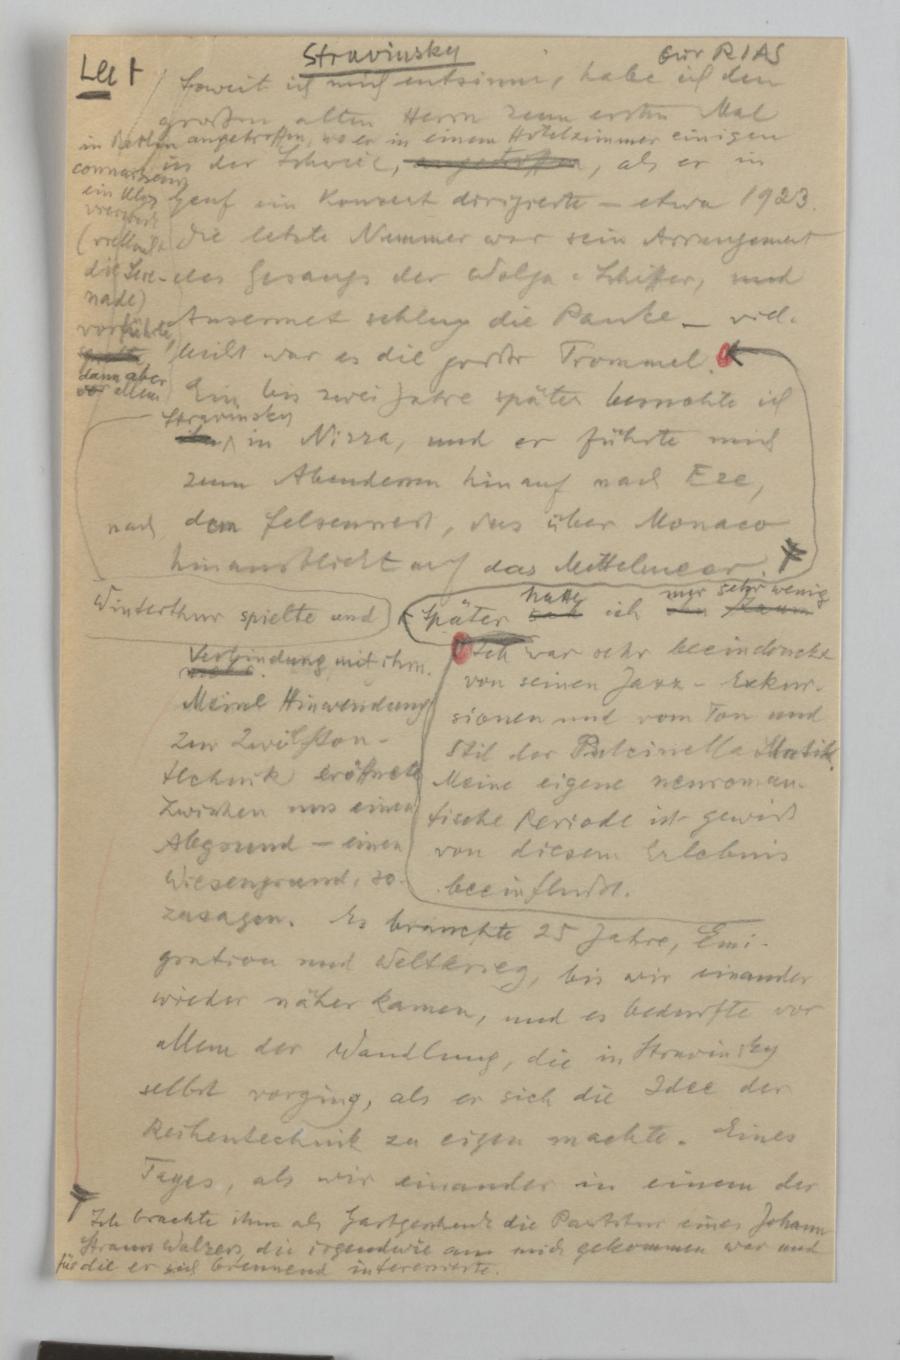 Lect
Stravinsky
für RIAS
Soweit ich mich entsinne, habe ich den
großen alten Herrn zum ersten Mal
in Berlin angetroffen, wo er in einem Hotelzimmer einigen
in der Schweiz, angetroffen, als er in
ein Werk
Genf ein Konzert dirigierte – etwa 1923.
(vielleicht
die Sere-
nade)
vorführte
dann aber
vor allem
Die letzte Nummer war sein Arrangement
des Gesangs der Wolga-Schiffer, und
Ansermet schlug die Pauke – viel-
leicht war es die große Trommel.
Ein bis zwei Jahre später besuchte ich
Stravinsky
in Nizza, und er führte mich
zum Abendessen hinauf nach Eze,
nach dem Felsennest, das über Monaco
hinausblickt auf das Mittelmeer.
Winterthur spielte und
Später hatte ich nur sehr wenig
Verbindung mit ihm.
Meine Hinwendung
zur Zwölfton-
technik eröffnete
zwischen uns einen
Abgrund – einen
Wiesengrund, so-
Ich war sehr beeindruckt
von seinen Jazz-Exkur-
sionen und vom Ton und
Stil der Pulcinella Musik.
Meine eigene neuroman-
tische Periode ist gewiß
von diesem Erlebnis
beeinflußt.
zusagen. Es brauchte 25 Jahre, Emi-
gration und Weltkrieg, bis wir einander
wieder näher kamen, und es bedurfte vor
allem der Wandlung, die in Stravinsky
selbst vorging, als er sich die Idee der
Reihentechnik zu eigen machte. Eines
Tages, als wir einander in einem der
Ich brachte ihm als Gastgeschenk die Partitur eines Johann
Strauss Walzers, die irgendwie an mich gekommen war und
für die er sich brennend interessierte.